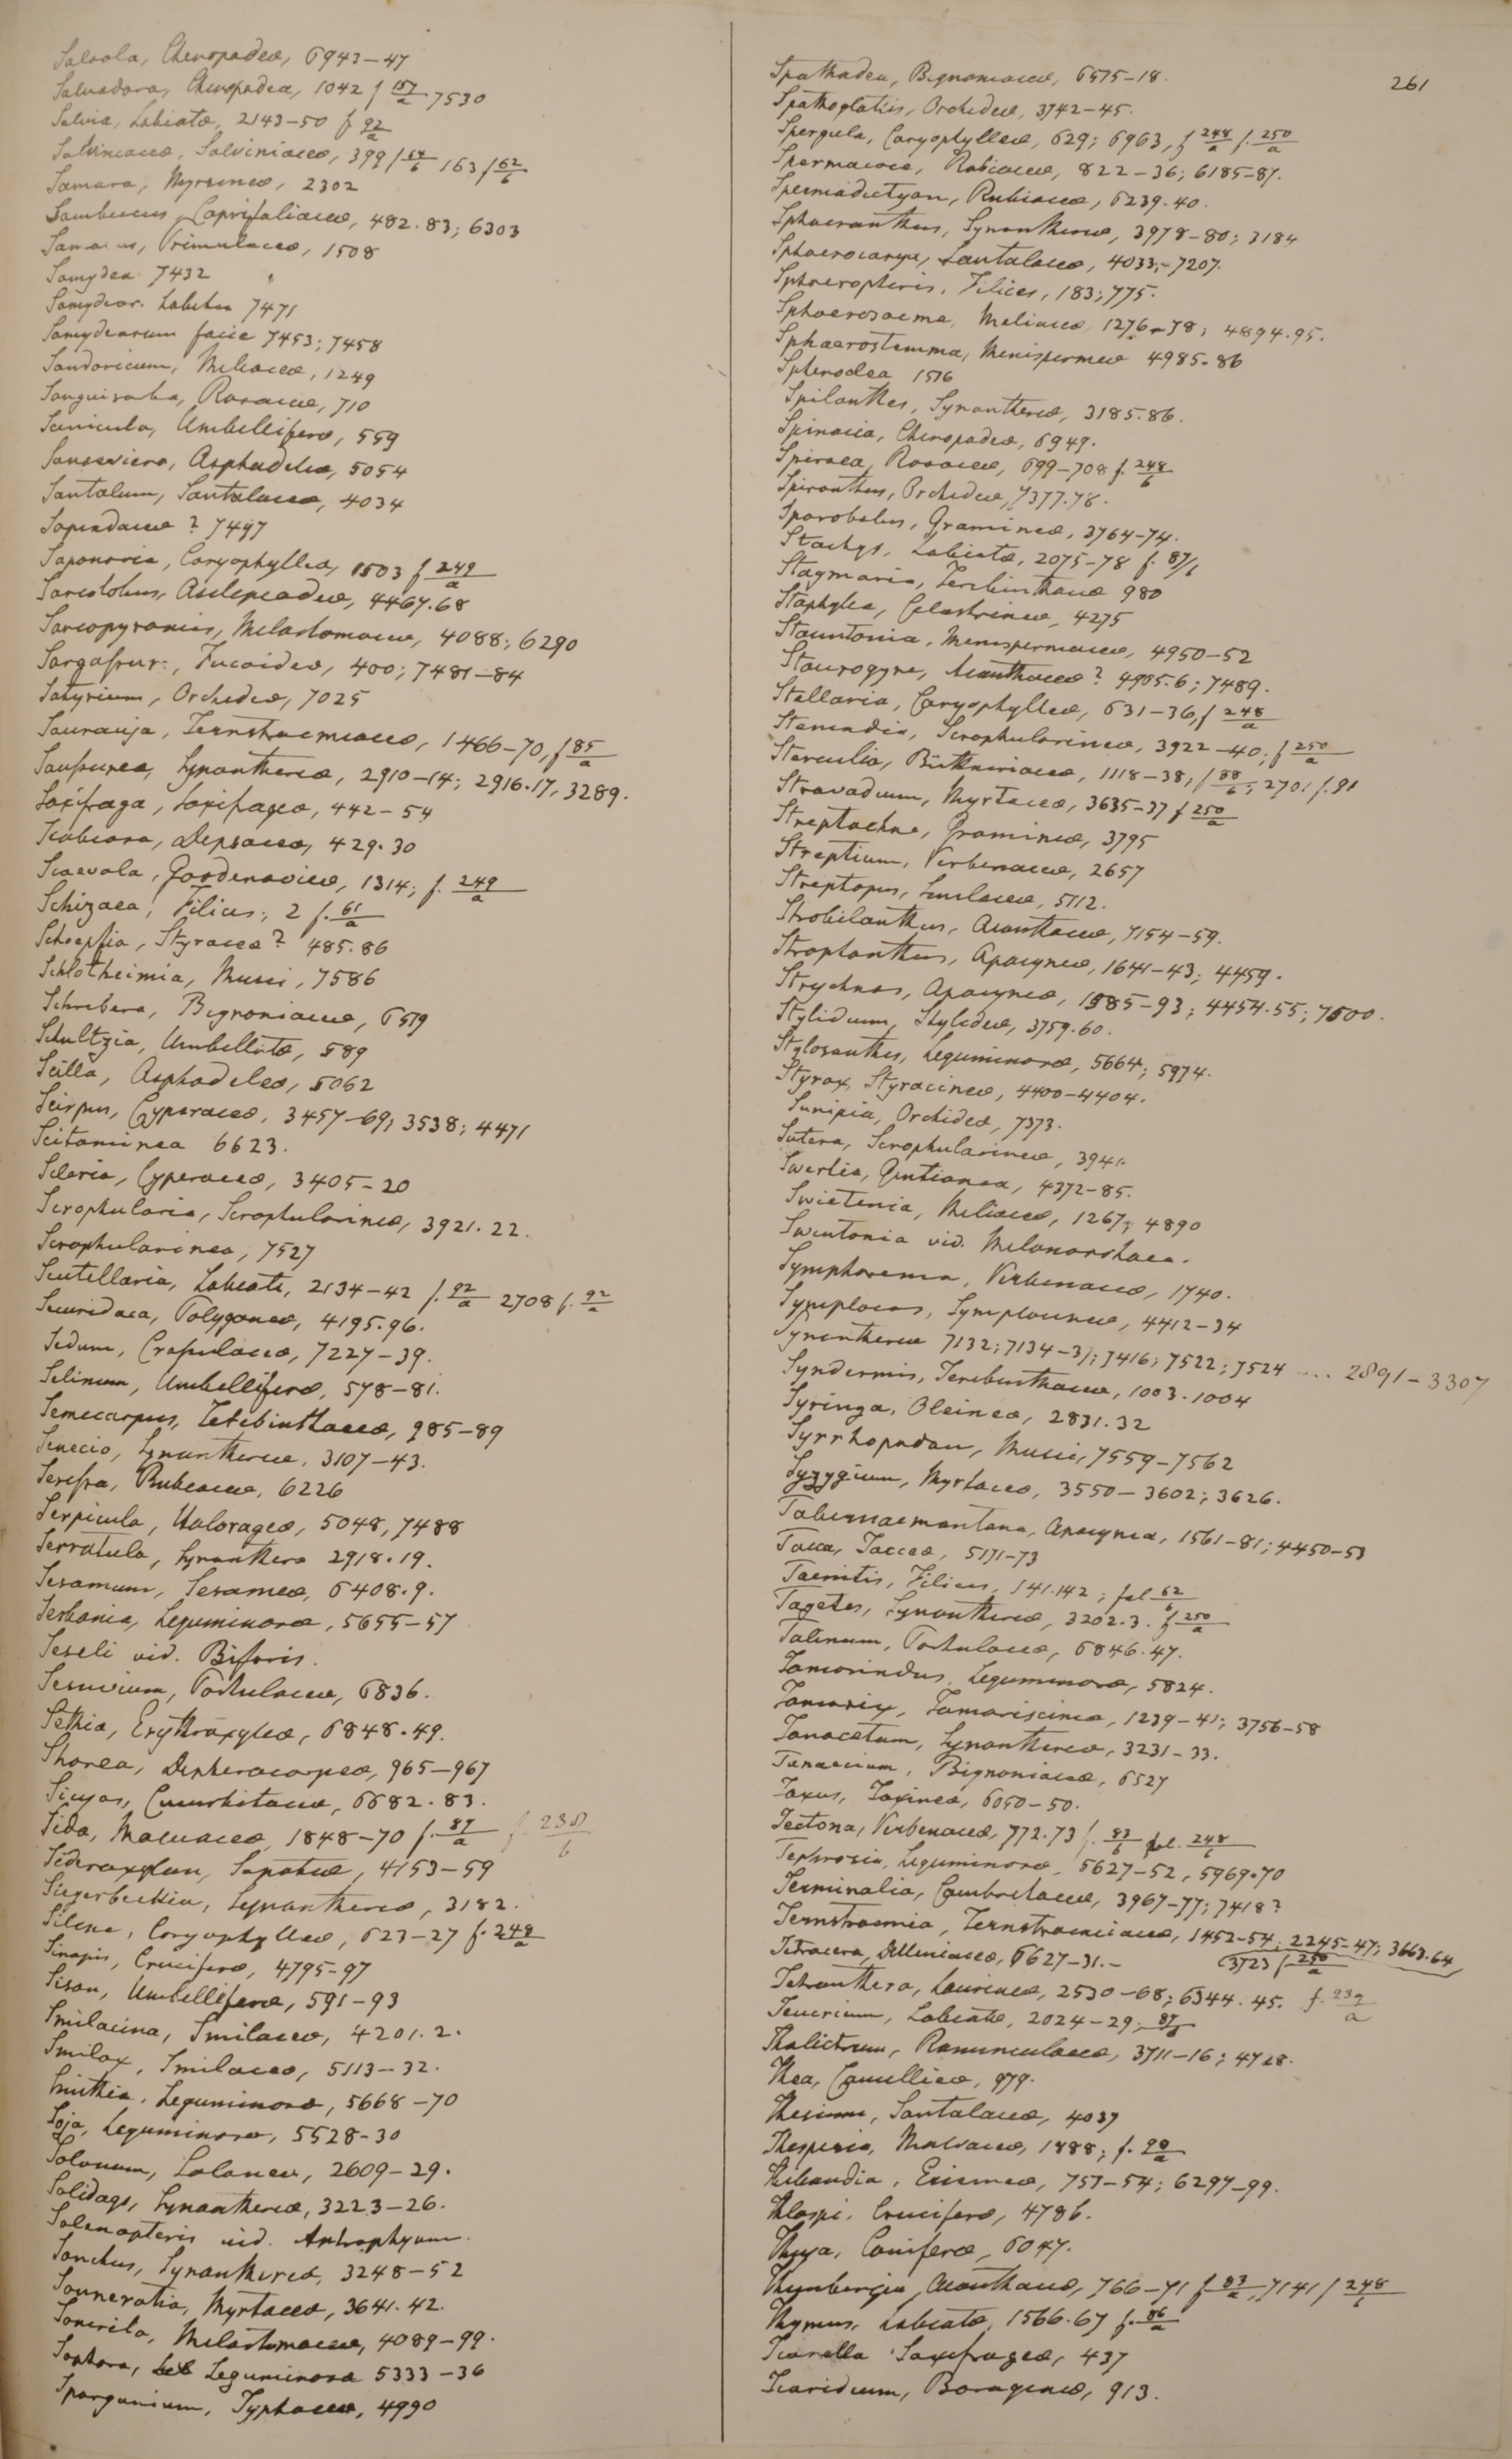 Salsola, Chenopodeæ, 6943–47
Salvadora, Chenopodea, 1042 f 157/a 7530
Salvia, Labiatæ, 2143–50 f 92/a
Salviniacea, Salviniaceæ, 399 f 64/b 163 f 62/b
Samara, Myrsineæ, 2302
Sambucus, Caprifoliaceæ, 482.83; 6303
Primulaceæ, 1508
Samydea 7432
Samydear. Labuhn 7471
Samydearum facie 7453; 7458
Sandoricum, Meliaceæ, 1249
Sanguisorba, Rosaceæ, 710
Sanicula, Umbelliferæ, 559
Sanseviera, Asphodeleæ, 5054
Santalum, Santalaceæ, 4034
Sapindaceæ ? 7497
Saponaria, Caryophylleæ, 1503 f 249/a
Sarcolobus, Asclepiadeæ, 4467.68
Sarcopyramis, Melastomaceæ, 4088; 6290
Sargassum, Fucoideæ, 400; 7481–84
Satyrium, Orchideæ, 7025
Saurauja, Ternstroemiaceæ, 1466–70, f 85/a
Saussurea, Synanthereæ, 2910–14; 2916.17, 3289.
Saxifraga, Saxifrageæ, 442–54
Scabiosa, Dipsaceæ, 429.30
Scaevola, Goodenovieæ, 1314; f. 249/a
Schizaea, Filices, 2 f. 61/a
Schoepfia, Styraceæ? 485.86
Schlotheimia, Musci, 7586
Schrebera, Bignoniaceæ, 6519
Schultzia, Umbellatæ, 589
Scilla, Asphodeleæ, 5062
Scirpus, Cyperaceæ, 3457–69; 3538; 4471
Scitaminea 6623.
Scleria, Cyperaceæ, 3405–20
Scrophularia, Scrophularineæ, 3921.22.
Scrophularinea, 7527
Scutellaria, Labiatæ, 2134–42 f. 92/a 2708 f. 92/a
Securidaca, Polygaleæ, 4195.96.
Sedum, Crassulaceæ, 7227–39.
Selinum, Umbelliferæ, 578–81.
Semecarpus, Terebinthaceæ, 985–89
Senecio, Synanthereæ, 3107–43.
Serissa, Rubiaceæ, 6226
Serpicula, Halorageæ, 5048, 7488
Serratula, Synanthera 2918.19.
Sesamum, Sesameæ, 6408.9.
Sesbania, Leguminosæ, 5655–57
Seseli vid. Biforis.
Sesuvium, Portulaceæ, 6836.
Sethia, Erythroxyleæ, 6848.49.
Shorea, Dipterocarpeæ, 965–967
Sicyos, Cucurbitaceæ, 6682.83.
Sida, Malvaceæ, 1848–70 f. 87/a f 238/b
Sideroxylon, Sapoteæ, 4153–59
Siegesbeckia, Synanthereæ, 3182.
Silene, Caryophylleæ, 623–27 f. 248/a
Sinapis, Cruciferæ, 4795–97
Sison, Umbelliferæ, 591–93
Smilacina, Smilaceæ, 4201.2.
Smilax, Smilaceæ, 5113–32.
Smithia, Leguminosæ, 5668–70
Soja, Leguminosæ, 5528–30
Solanum, Solaneæ, 2609–29.
Solidago, Synanthereæ, 3223–26.
Solenopteris vid. Antrophyum.
Sonchus, Synanthereæ, 3248–52
Sonneratia, Myrtaceæ, 3641.42.
Sonerila, Melastomaceæ, 4089–99.
Sophora, Leguminosæ 5333–36
Sparganium, Typhaceæ, 4990
261
Spathodea, Bignoniaceæ, 6515–18.
Spathoglottis, Orchideæ, 3742–45.
Spergula, Caryophylleæ, 629; 6963, f 248/a f. 250/a
Spermacoce, Rubiaceæ, 822–36; 6185–87.
Spermadictyon, Rubiaceæ, 6239.40.
Sphaeranthus, Synanthereæ, 3978–80; 3184
Sphaerocarya, Santalaceæ, 4033;–7207.
Sphaeropteris, Filices, 183; 775.
Sphaerosacme, Meliaceæ, 1276–78; 4894.95.
Sphaerostemma, Menispermeæ 4985.86
Sphenoclea 1516
Spilanthes, Synanthereæ, 3185.86.
Spinacia, Chenopodeæ, 6949.
Spiraea, Rosaceæ, 699–708 f. 248/b
Spiranthes, Orchideæ, 7377.78.
Sporobolus, Gramineæ, 3764–74.
Stachys, Labiatæ, 2075–78 f. 87/b
Stagmaria, Terebinthaceæ 980
Staphylea, Celastrineæ, 4275
Stauntonia, Menispermaceæ, 4950–52
Staurogyne, Acanthaceæ? 4905.6; 7489.
Stellaria, Caryophylleæ, 631–36, f 248/a
Stemodia, Scrophularineæ, 3922–40; f 250/a
Sterculia, Büttneriaceæ, 1118–38; f 88/b; 2701 f. 91
Stravadium, Myrtaceæ, 3635–37 f 250/a
Streptachne, Gramineæ, 3795
Streptium, Verbenaceæ, 2657
Streptopus, Smilaceæ, 5112.
Strobilanthes, Acanthaceæ, 7154–59.
Strophanthus, Apocyneæ, 1641–43; 4459.
Strychnos, Apocyneæ, 1585–93; 4454.55; 7500.
Stylidium, Stylideæ, 3759.60.
Stylosanthes, Leguminosæ, 5664; 5974.
Styrax, Styracineæ, 4400–4404.
Sunipia, Orchideæ, 7373.
Sutera, Scrophularineæ, 3941.
Swertia, Gentianea, 4372–85.
Swietenia, Meliaceæ, 1267; 4890
Swintonia vid. Melanorrhaea.
Symphorema, Verbenaceæ, 1740.
Symplocos, Symplocineæ, 4412–34
Synanthereæ 7132; 7134–37; 7416; 7522; 7524 .... 2891–3307
Syndermis, Terebinthaceæ, 1003.1004
Syringa, Oleineæ, 2831.32
Syrrhopodon, Musci, 7559–7562
Syzygium, Myrtaceæ, 3550–3602; 3626.
Tabernaemontana, Apocynea, 1561–81; 4450–53
Tacca, Tacceæ, 5171–73
Taenitis, Filices, 141.142; fol 62/b
Tagetes, Synanthereæ, 3202.3. f 250/a
Talinum, Portulaceæ, 6846.47.
Tamarindus, Leguminosæ, 5824.
Tamarix, Tamariscineæ, 1239–41; 3756–58
Tanacetum, Synanthereæ, 3231–33.
Tanaecium, Bignoniaceæ, 6527
Taxus, Taxineæ, 6050–50.
Tectona, Verbenaceæ, 772.73 f. 83/b fol. 248/b
Tephrosia, Leguminosæ, 5627–52, 5969.70
Terminalia, Combretaceæ, 3967–77; 7418?
Ternstroemia, Ternstroemiaceæ, 1452–54; 2245–47; 3663.64
(3723 f 250/a
Tetracera, Dilleniaceæ, 6627–31.–
Tetranthera, Laurineæ, 2530–68; 6344.45. f. 239/a
Teucrium, Labiatæ, 2024–29; 87/b
Thalictrum, Ranunculaceæ, 3711–16; 4728.
Thea, Camellieæ, 979.
Thesium, Santalaceæ, 4037
Thespesia, Malvaceæ, 1888; f. 90/a
Thibaudia, Ericineæ, 751–54; 6297–99.
Thlaspi, Cruciferæ, 4786.
Thuya, Coniferæ, 6047.
Thunbergia, Acanthaceæ, 766–71 f 83/a, 7141 f 248/b
Thymus, Labiatæ, 1566.67 f. 86/a
Tiarella Saxifrageæ, 437
Tiaridium, Boragineæ, 913.